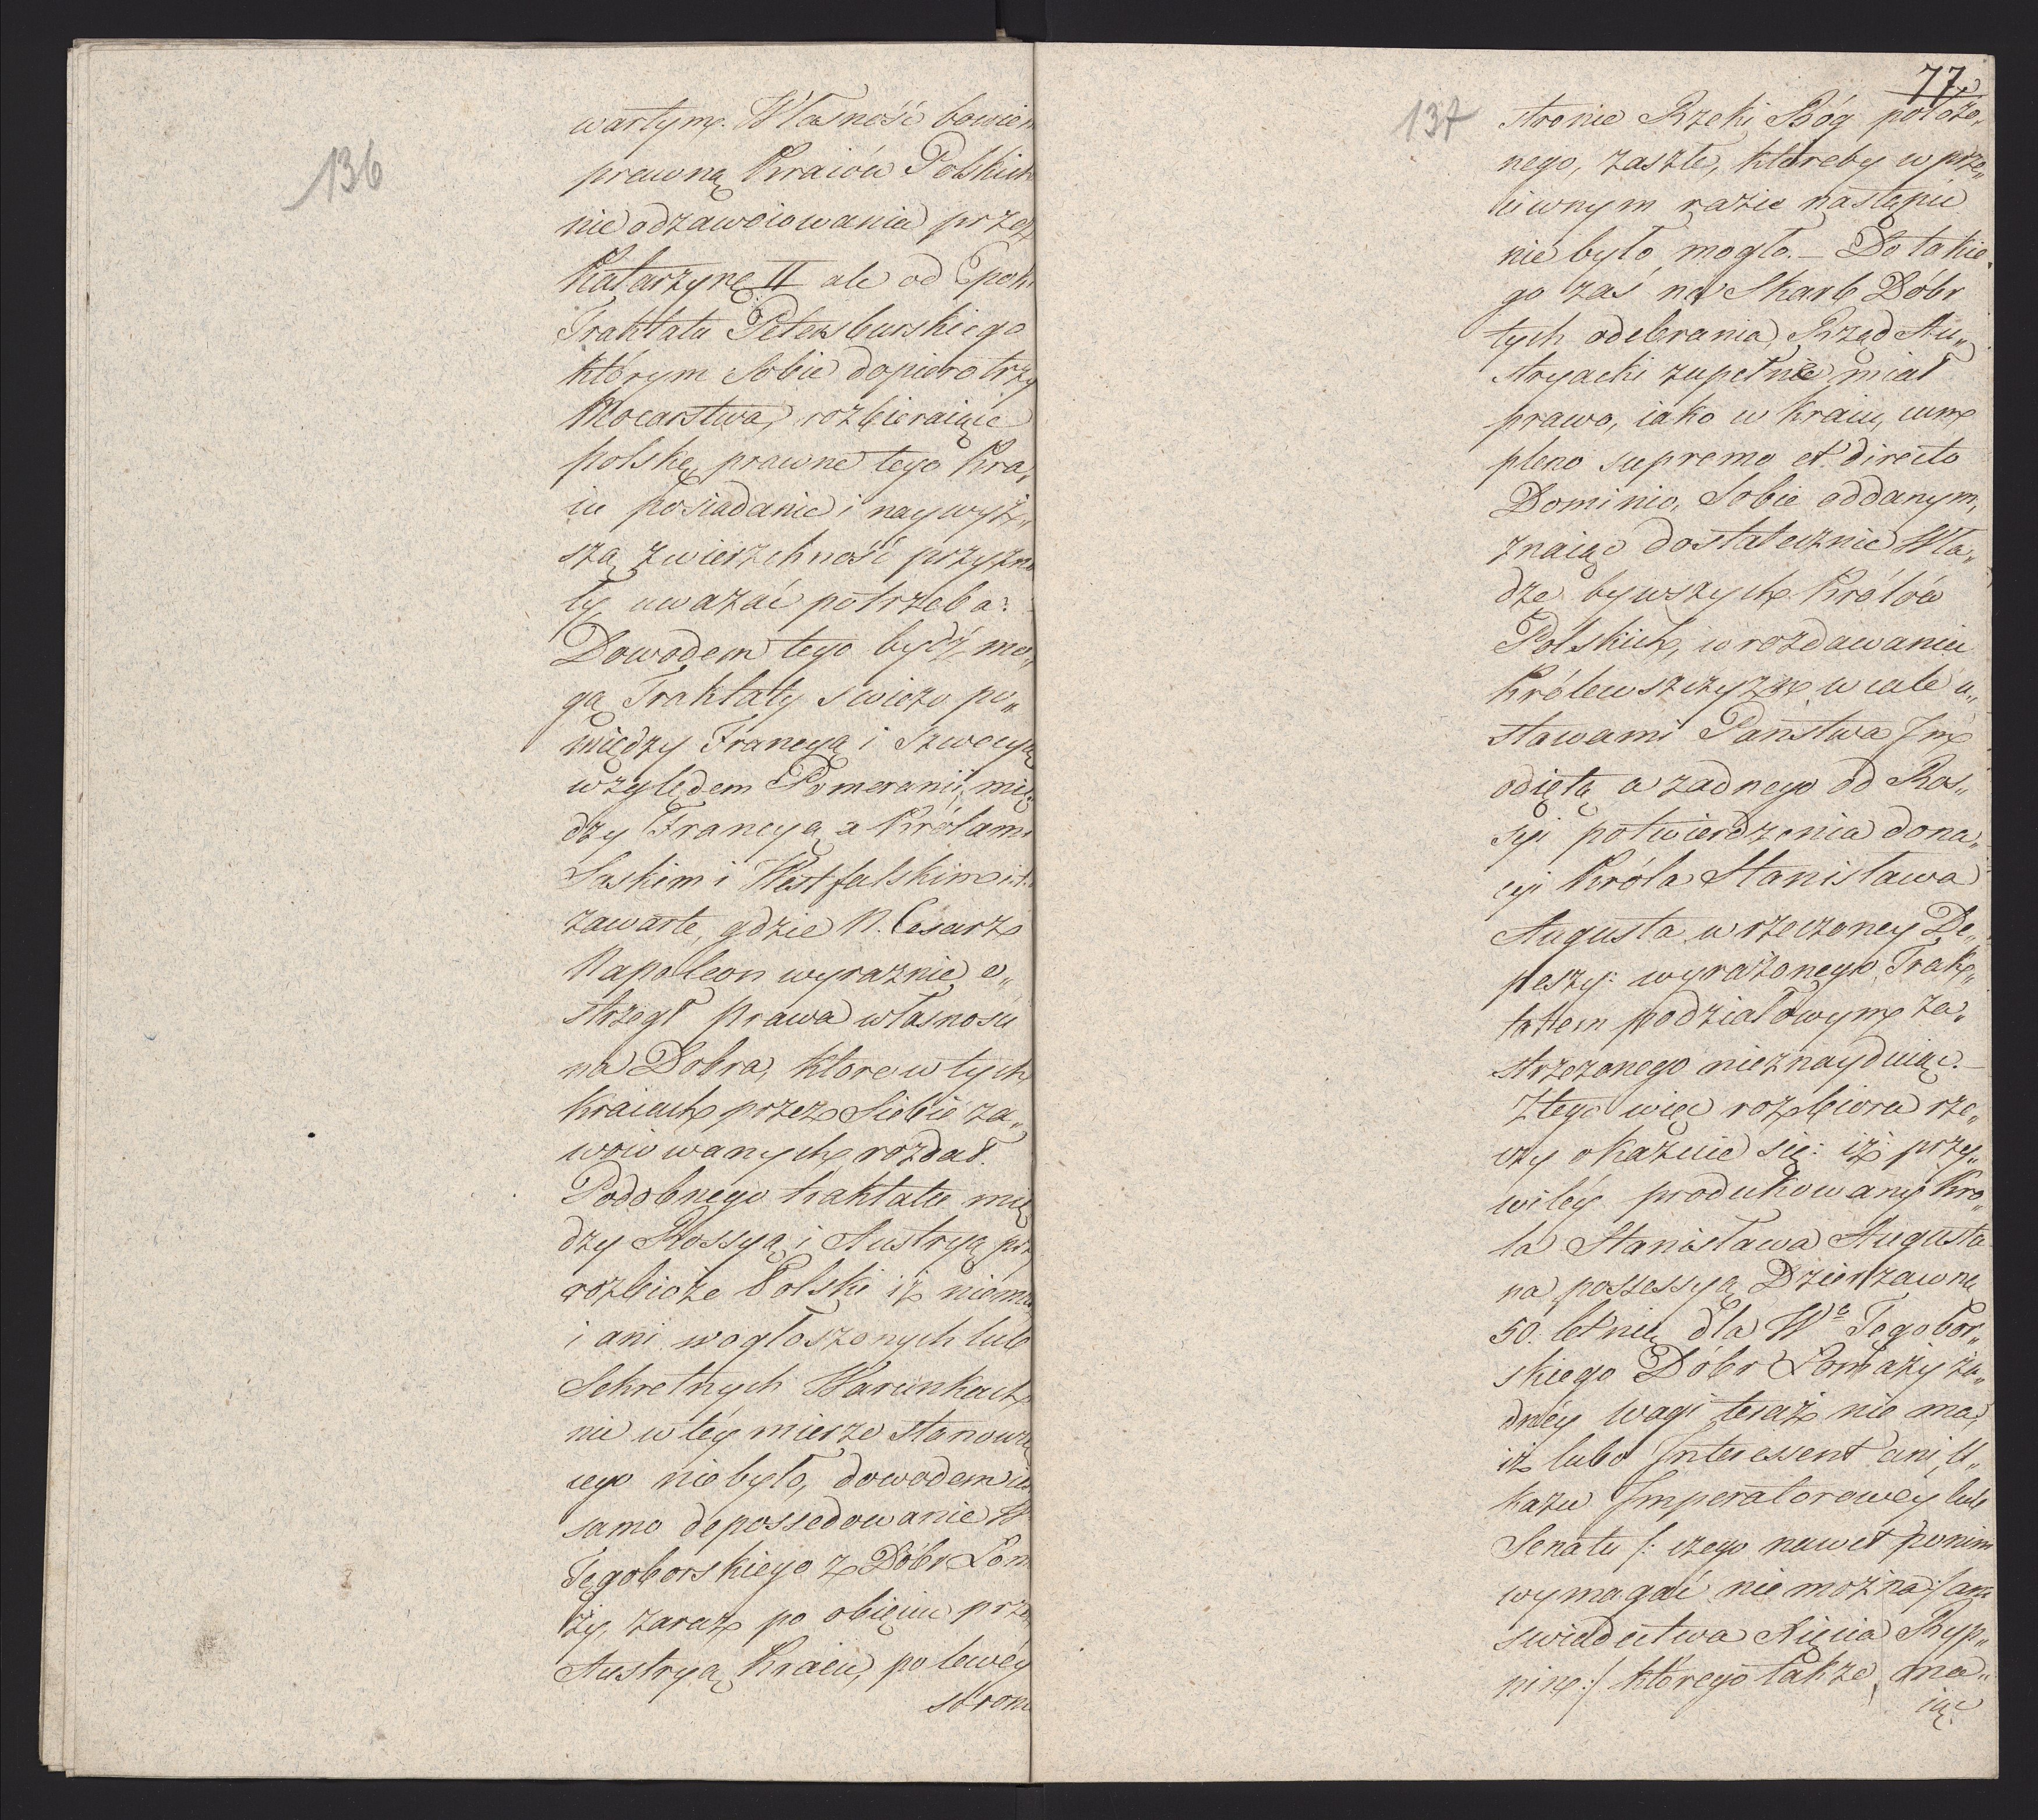 136
wartym. Własność bowiem
prawną Kraiów Polskich
nie od zawoiowania przez
Katarzynę II ale od Epoki
Traktatu Petersburskiego
którym Sobie dopiero trzy
Mocarstwa, rozbieraiące
polskę, prawne tego Kra„
iu posiadanie i naywyż„
szą zwierzchność przyzna
ły uważać potrzeba.
Dowodem tego bydź mo„
gą Traktaty swieżo po„
między Francyą i Szwecyą
względem Pomeranii, mię
dzy Francyą a Królami
Saskim i Westfalskim i t.
zawarte, gdzie N. Cesarz
Napoleon wyraznie o„
strzegł prawa własności
na Dobra, ktore w tych
Kraiach przez Siebie za„
woiowanych rozdał.
Podobnego traktatu mię
dzy Rossyą i Austryą przy
rozbiorze Polski iż niema
i ani w ogłoszonych lub
Sekretnych Warunkach
nic w tey mierze stanowią
cego nie było, dowodem iest
samo depossedowanie W
Tęgoborskiego z Dóbr Łom
ży, zaraz po obięciu przez
Austryą Kraiu, po lewéy
stronie
77.
137
stronie Rzeki Bóg położo„
nego, zaszłe, któreby w prze„
ciwnym razie nastąpić
nie było mogło. – Do takie„
go zaś na Skarb Dóbr
tych odebrania, Rząd Au„
stryacki zupełnie miał
prawo, iako w Kraiu, cum
pleno supremo et directo
Dominio, Sobie oddanym,
znaiąc dostatecznie Wła„
dze bywszych Królów
Polskich, w rozdawaniu
Królewszczyzn w cale u„
stawami Państwa Im
odiętą a żadnego od Ros„
syi potwierdzenia dona„
cyi Króla Stanisława
Augusta w rzeczoney De„
peszy: wyrażonego, Trak„
tatem podziałowym za„
strzeżonego nieznayduiąc. –
Z tego więc rozbioru rze„
czy okazuie się: iż przy„
wiléy produkowany Kró„
la Stanisława Augusta
na possessyą Dzierzawną
50. letnią dla Wo Tęgobor„
skiego Dóbr Łomaży ża„
dnéy wagi teraz nie ma,
iż lubo Interessent ani U„
kazu Imperatorowéy lub
Senatu /: czego nawet po nim
wymagać nie można :/ ani
swiadectwa Xięcia Rep„
nin :/ którego także, ma„
iąc